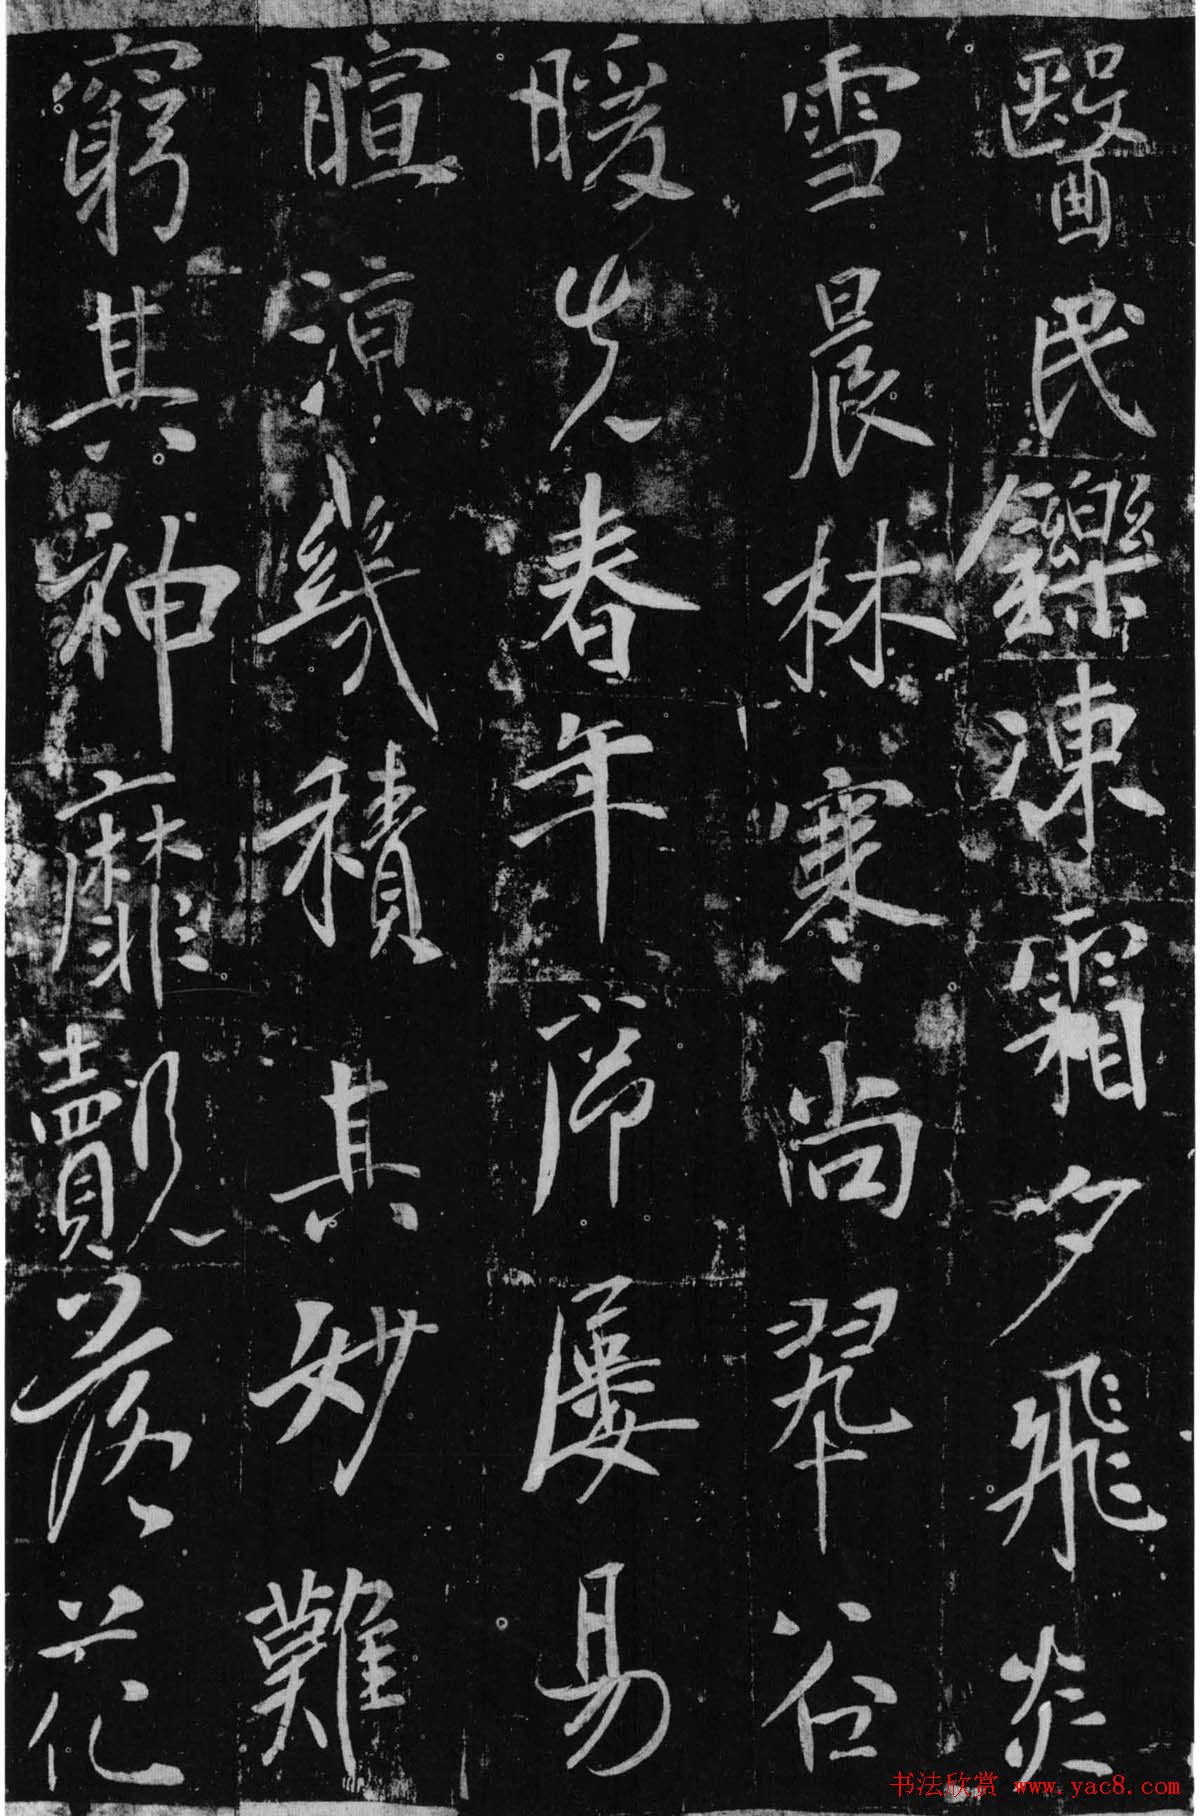 醫民鑠凍霜夕飛炎
雪晨林寒尚翠谷
暖先春年序屢易
暄涼幾積其妙難
窮其神靡覿落花
书法欣赏 www.yac8.com